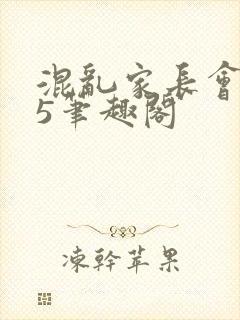 混亂家長會
5筆趣閣
凍幹苹果